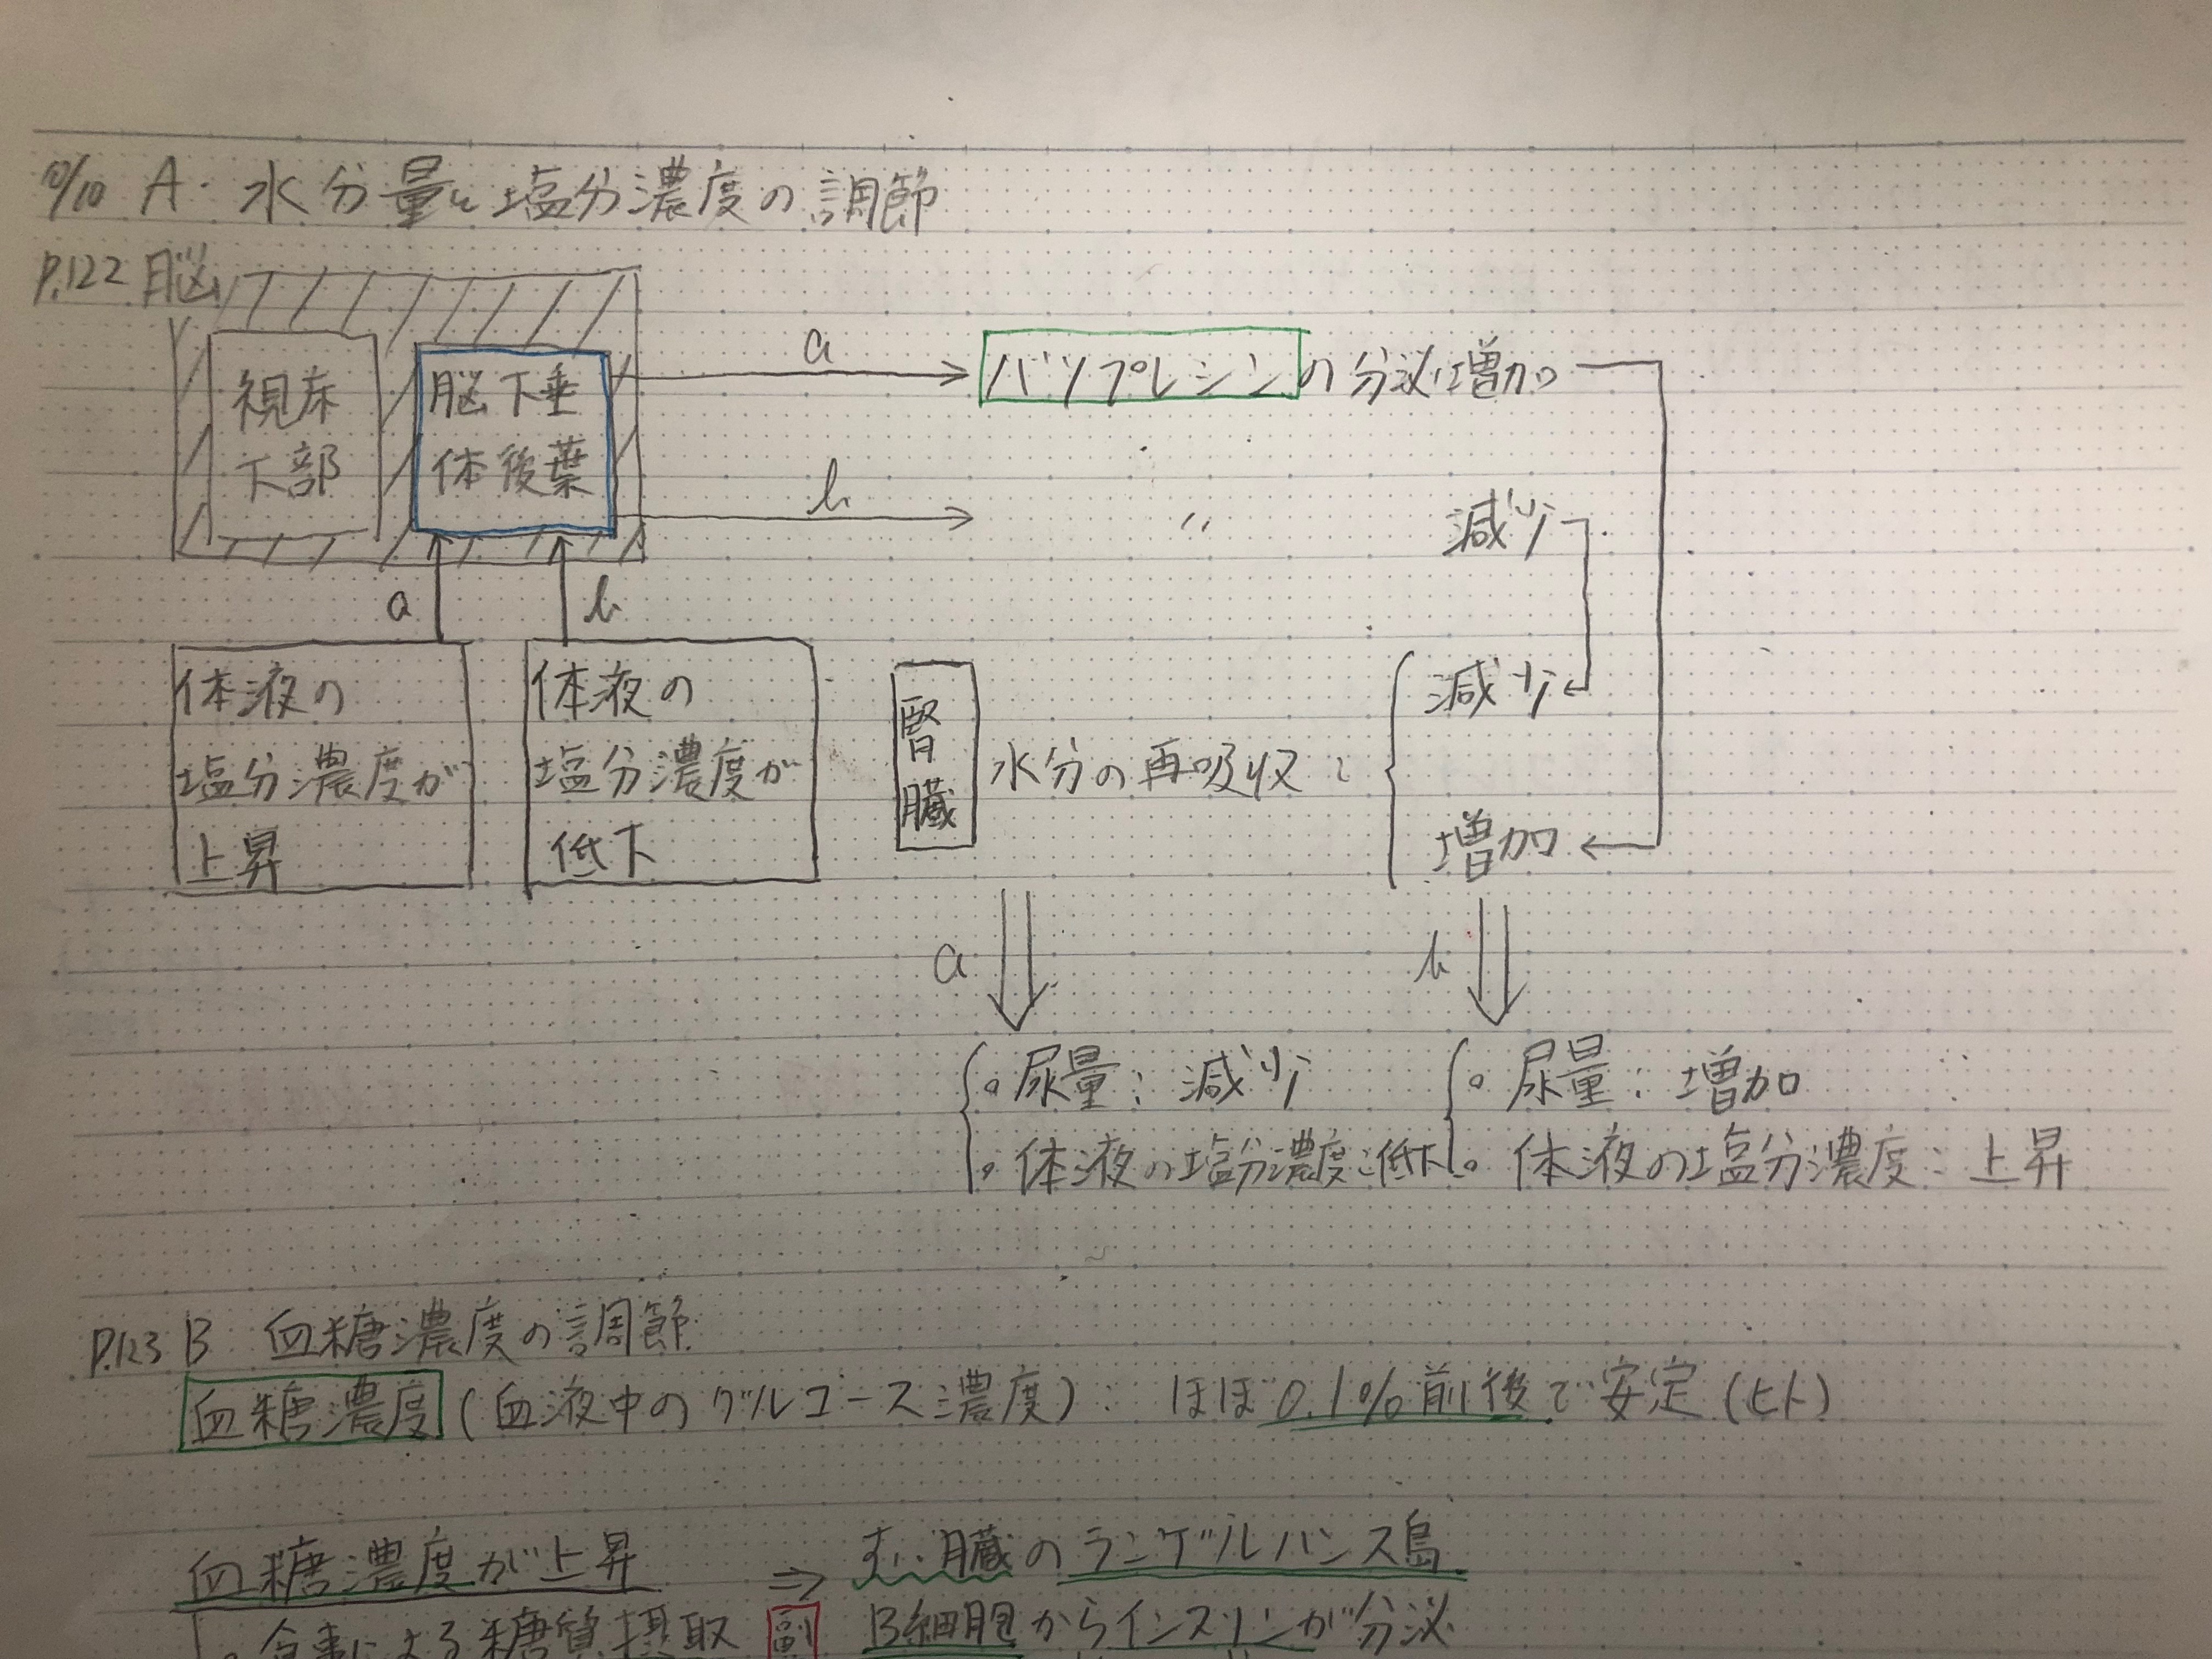 10/10 A. 水分量と塩分濃度の調節
P.122 脳
視床
下部
脳下垂
体後葉
a
バソプレシンの分泌増加
b
〃 減少
a
b
体液の
塩分濃度が
上昇
体液の
塩分濃度が
低下
腎臓
水分の再吸収:
減少
増加
a
b
尿量: 減少
体液の塩分濃度: 低下
尿量: 増加
体液の塩分濃度: 上昇
P.123 B 血糖濃度の調節
血糖濃度 (血液中のグルコース濃度): ほぼ 0.1%前後で安定 (ヒト)
血糖濃度が上昇 ⇒ すい臓のランゲルハンス島
食事による糖質摂取 副 B細胞からインスリンが分泌